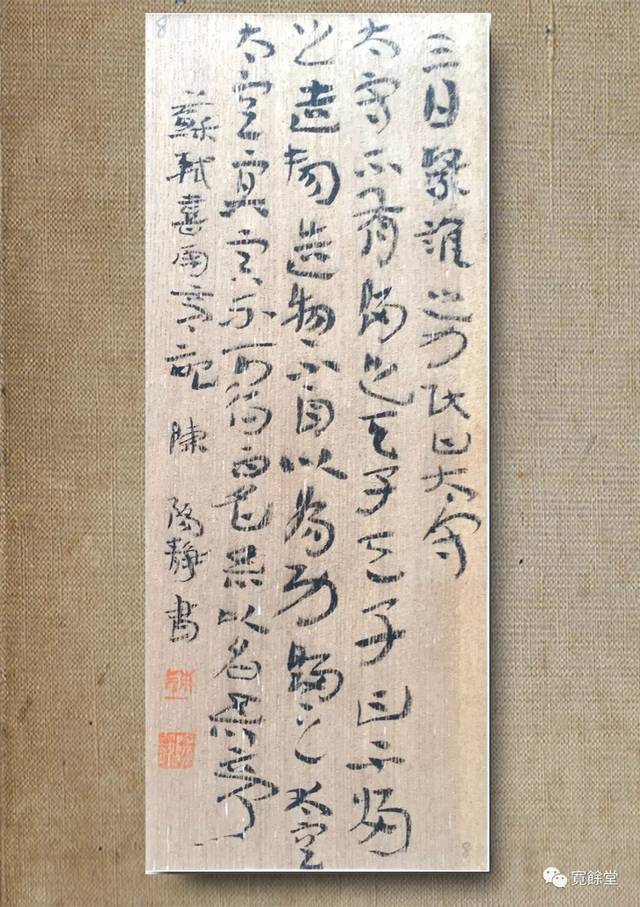 8
三日繄誰之力民曰太守
太守不有歸之天子天子曰不歸
之造物造物不自以為功歸之太空
太空冥冥不可得而名吾以名吾亭
蘇軾喜雨亭記 陳陽靜書
8
寬餘堂